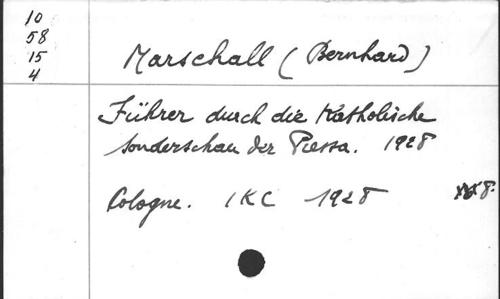 10
58
15
4
Marschall (Bernhard)
Führer durch die Katholische
Sonderschau der Pressa. 1928
Cologne. IKC 1928 8.